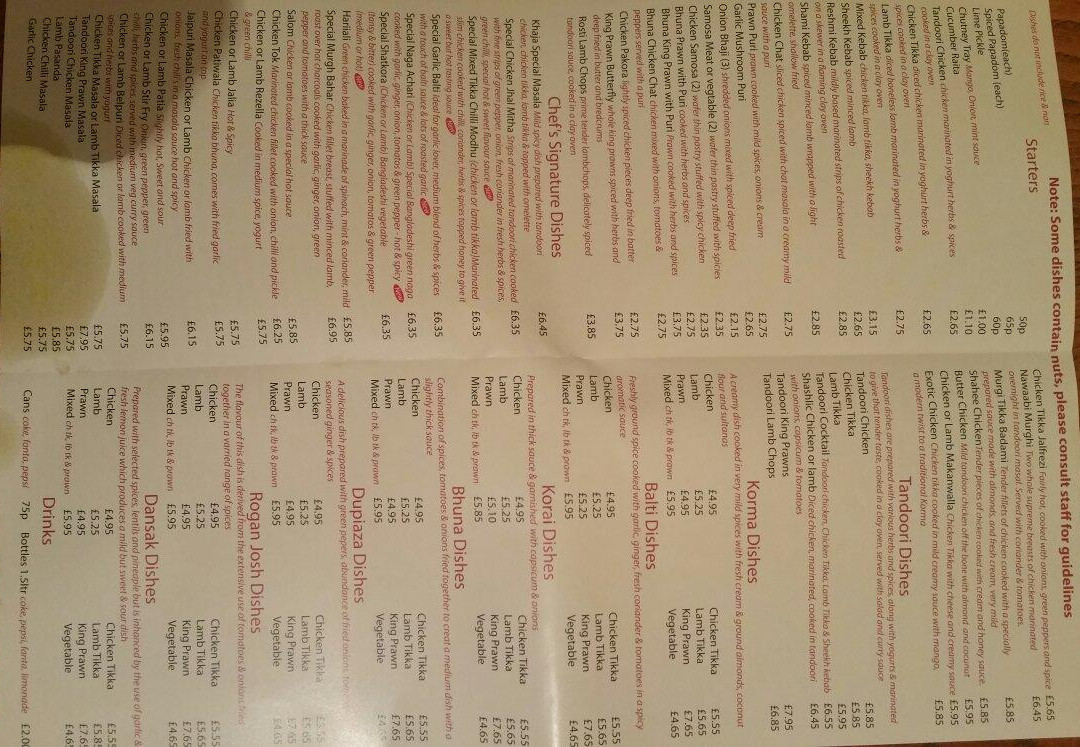 Note: Some dishes contain nuts, please consult staff for guidelines
Dishes do not include rice & nan
Starters
Papadom(each) 50p
Spiced Papadom (each) 65p
60p
Lime Pickle £1.00
Chutney Tray Mango, Onion, mint sauce £1.10
Cucumber Raita
Tandoori Chicken chicken marinated in yoghurt herbs & spices £2.65
cooked in a clay oven
Chicken Tikka diced chicken marinated in yoghurt herbs & £2.65
spices cooked in a clay oven
Lamb Tikka diced boneless lamb marinated in yoghurt herbs & £2.75
spices cooked in a clay oven
Mixed Kebab chicken tikka, lamb tikka, sheekh kebab £3.15
Sheekh Kebab spiced minced lamb £2.65
Reshmi Kebab mildly basted marinated strips of chicken roasted £2.85
on a skewer in a flaming clay oven
Shami Kebab spiced minced lamb wrapped with a light £2.85
omelette, shallow fried
Chicken Chat chicken spiced with chat masala in a creamy mild £2.75
sauce with a puri
Prawn Puri prawn cooked with mild spices, onions & cream £2.75
Garlic Mushroom Puri £2.65
Onion Bhaji (3) shredded onions mixed with spiced deep fried £2.15
Samosa Meat or vegtable (2) wafer thin pastry stuffed with spicies £2.35
Chicken Samosa (2) wafer thin pastry stuffed with spicy chicken £2.35
Prawn with Puri cooked with herbs and spices £2.75
Bhuna King Prawn with Puri Prawn cooked with herbs and spices £3.75
Bhuna Chicken Chat chicken mixed with onions, tomatoes & £2.75
peppers served with a puri
Chicken Pakora slightly spiced chicken pieces deep fried in batter £2.75
King Prawn Butterfly whole king prawns spiced with herbs and £3.75
deep fried in batter and breadcrumbs
Rosti Lamb Chops prime tender lambchops, delicately spiced £3.85
tandoori sauce, cooked in a clay oven
Chef's Signature Dishes
Khaja Special Masala Mild spicy dish prepared with tandoori £6.45
chicken, chicken tikka, lamb tikka & topped with omelette
Special Chicken Jhal Mitha Strips of marinated tandoori chicken cooked £6.35
with fine strips of green pepper, onion, fresh coriander in fresh herbs & spices,
green chilli, special hot & sweet flavour sauce
Special Mixed Tikka Chilli Modhu (chicken or lamb tikka)Marinated £6.35
Special Garlic Balti Ideal for garlic lover, medium blend of herbs & spices £6.35
with a touch of balti sauce & lots of roasted garlic
Special Naga Achari (Chicken or Lamb) Special Bangladeshi green naga £6.35
cooked with garlic, ginger, onion, tomatos & green pepper - hot & spicy
Special Shatkora (Chicken or Lamb) Bangladeshi vegetable £6.35
(tangy & bitter) cooked with garlic, ginger, onion, tomatos & green pepper
(medium or hot)
Special Murgh Bahar Chicken fillet breast, stuffed with minced lamb, £6.95
roast over hot charcoals cooked with garlic, ginger, onion, green
pepper and tomatoes with a thick sauce
Hariali Green chicken baked in a marinade of spinach, mint & coriander, mild £5.85
Salom Chicken or lamb cooked in a special hot sauce £5.85
Chicken Tok Marinated chicken fillet cooked with onion, chilli and pickle £6.25
Chicken or Lamb Rezella Cooked in medium spice, yogurt £5.75
& green chilli
Chicken or Lamb Jalia Hot & Spicy £5.75
Chicken Patwala Chicken tikka bhuna, comes with fried garlic £5.75
and yogurt on top
Jaipuri Masala Chicken or Lamb Chicken or lamb fried with £6.15
onions, fresh chilli in a masala sauce, hot and spicy
Chicken or Lamb Patia Slightly hot, Sweet and sour £5.95
Chicken or Lamb Stir Fry Onion, green pepper, green £6.15
chilli, herbs and spices, served with medium veg curry sauce
Chicken or Lamb Belpuri Diced chicken or lamb cooked with medium £5.75
spices and herbs with yogurt
Chicken Tikka Masala or Lamb Tikka Masala £5.75
Tandoori King Prawn Masala £7.95
Tandoori Chicken Masala £5.75
Lamb Pasanda £5.85
Chicken Chilli Masala £5.75
Garlic Chicken £5.75
Chicken Tikka Jalfrezi Fairly hot, cooked with onions, green peppers and spice £5.65
Nawaabi Murghi Two whole supreme breasts of chicken marinated £6.45
overnight in tandoori masol. Served with coriander & tomatoes.
Murgi Tikka Badami Tender fillets of chicken cooked with a specially £5.85
prepared sauce made with almonds, and fresh cream, very mild
Shahee Chicken Tender pieces of chicken cooked with cream and honey sauce. £5.85
Butter Chicken Mild tandoori chicken off the bone with almond and coconut £5.95
Chicken or Lamb Makanwala Chicken Tikka with cheese and creamy sauce £5.95
Exotic Chicken Chicken tikka cooked in mild creamy sauce with mango, £5.85
a modern twist to a traditional Korma
Tandoori Dishes
Tandoori dishes are prepared with various herbs and spices, along with yogurts & marinated
to give that tender taste, cooked in a clay oven, served with salad and curry sauce
Tandoori Chicken £5.85
Chicken Tikka £5.85
Lamb Tikka £5.95
Tandoori Cocktail Tandoori chicken, Chicken Tikka, Lamb Tikka & Sheekh kebab £6.55
Shashlic Chicken or lamb Diced chicken, marinated, cooked in tandoori £6.45
with onions, capsicum & tomatoes
Tandoori King Prawns £7.95
Tandoori Lamb Chops £6.85
Korma Dishes
A creamy dish cooked in very mild spices with fresh cream & ground almonds, coconut
flour and sultanas
Chicken £4.95 Chicken Tikka £5.55
Lamb £5.25 Lamb Tikka £5.65
Prawn £4.95 King Prawn £7.65
Mixed ch tk, lb tk & prawn £5.95 Vegetable £4.65
Balti Dishes
Freshly ground spice cooked with garlic, ginger, fresh coriander & tomatoes in a spicy
aromatic sauce
Chicken £4.95 Chicken Tikka £5.55
Lamb £5.25 Lamb Tikka £5.65
Prawn £4.95 King Prawn £7.65
Mixed ch tk, lb tk & prawn £5.95 Vegetable £4.65
Korai Dishes
Prepared in thick sauce & garnished with capsicum & onions
Chicken £4.95 Chicken Tikka £5.55
Lamb £5.25 Lamb Tikka £5.65
Prawn £5.10 King Prawn £7.65
Mixed ch tk, lb tk & prawn £5.85 Vegetable £4.65
Bhuna Dishes
Combination of spices, tomatoes & onions fried together to creat a medium dish with a
slightly thick sauce
Chicken £4.95 Chicken Tikka £5.55
Lamb £5.25 Lamb Tikka £5.65
Prawn £4.95 King Prawn £7.65
Mixed ch tk, lb tk & prawn £5.95 Vegetable
Dupiaza Dishes
A delicious dish prepared with green pepers, abundance of fried onion,
seasoned ginger & spices
Chicken £4.95 Chicken Tikka
Lamb £5.25 Lamb Tikka
Prawn £4.95 King Prawn
Mixed ch tk, lb tk & prawn £5.95 Vegetable
Rogan Josh Dishes
The flavour of this dish is derived from the extensive use of tomatoes & onions fried
together in a varried range of spices
Chicken £4.95 Chicken Tikka £5.55
Lamb £5.25 Lamb Tikka £5.65
Prawn £4.95 King Prawn £7.65
Mixed ch tk, lb tk & prawn £5.95 Vegetable £4.65
Dansak Dishes
Prepared with selected spices, lentils and pineapple but is inhanced by the use of garlic &
fresh lemon juice which produces a mild but sweet & sour dish
Chicken £4.95 Chicken Tikka £5.55
Lamb £5.25 Lamb Tikka £5.85
Prawn £4.95 King Prawn £7.65
Mixed ch tk, lb tk & prawn £5.95 Vegetable £4.65
Drinks
Cans coke, fanta, pepsi 75p Bottles 1.5ltr coke, pepsi, fanta, lemonade £2.00